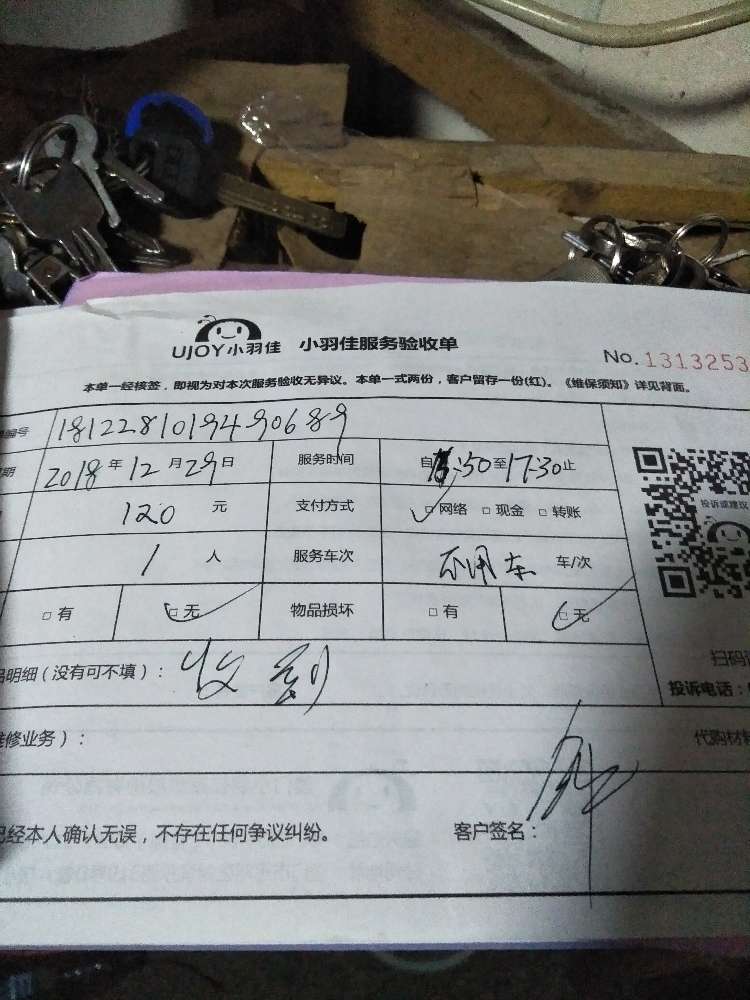 UJOY小羽佳 小羽佳服务验收单
No.1313253
本单一经核签，即视为对本次服务验收无异议。本单一式两份，客户留存一份(红)。《维保须知》详见背面。
编号 181228101949068 9
期 2018年12月29日 服务时间 自:50至17:30止
120 元 支付方式 □网络 □现金 □转账
1 人 服务车次 不用车 车/次
□有 □无 物品损坏 □有 □无
投诉或建议
扫码
明细（没有可不填）： 收到
投诉电话：
修业务）： 代购材
经本人确认无误，不存在任何争议纠纷。 客户签名：